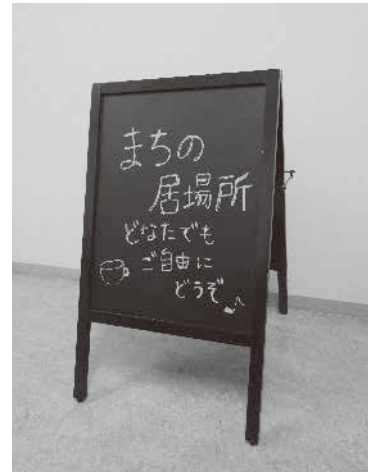 まちの
居場所
どなたでも
ご自由に
どうぞ♪